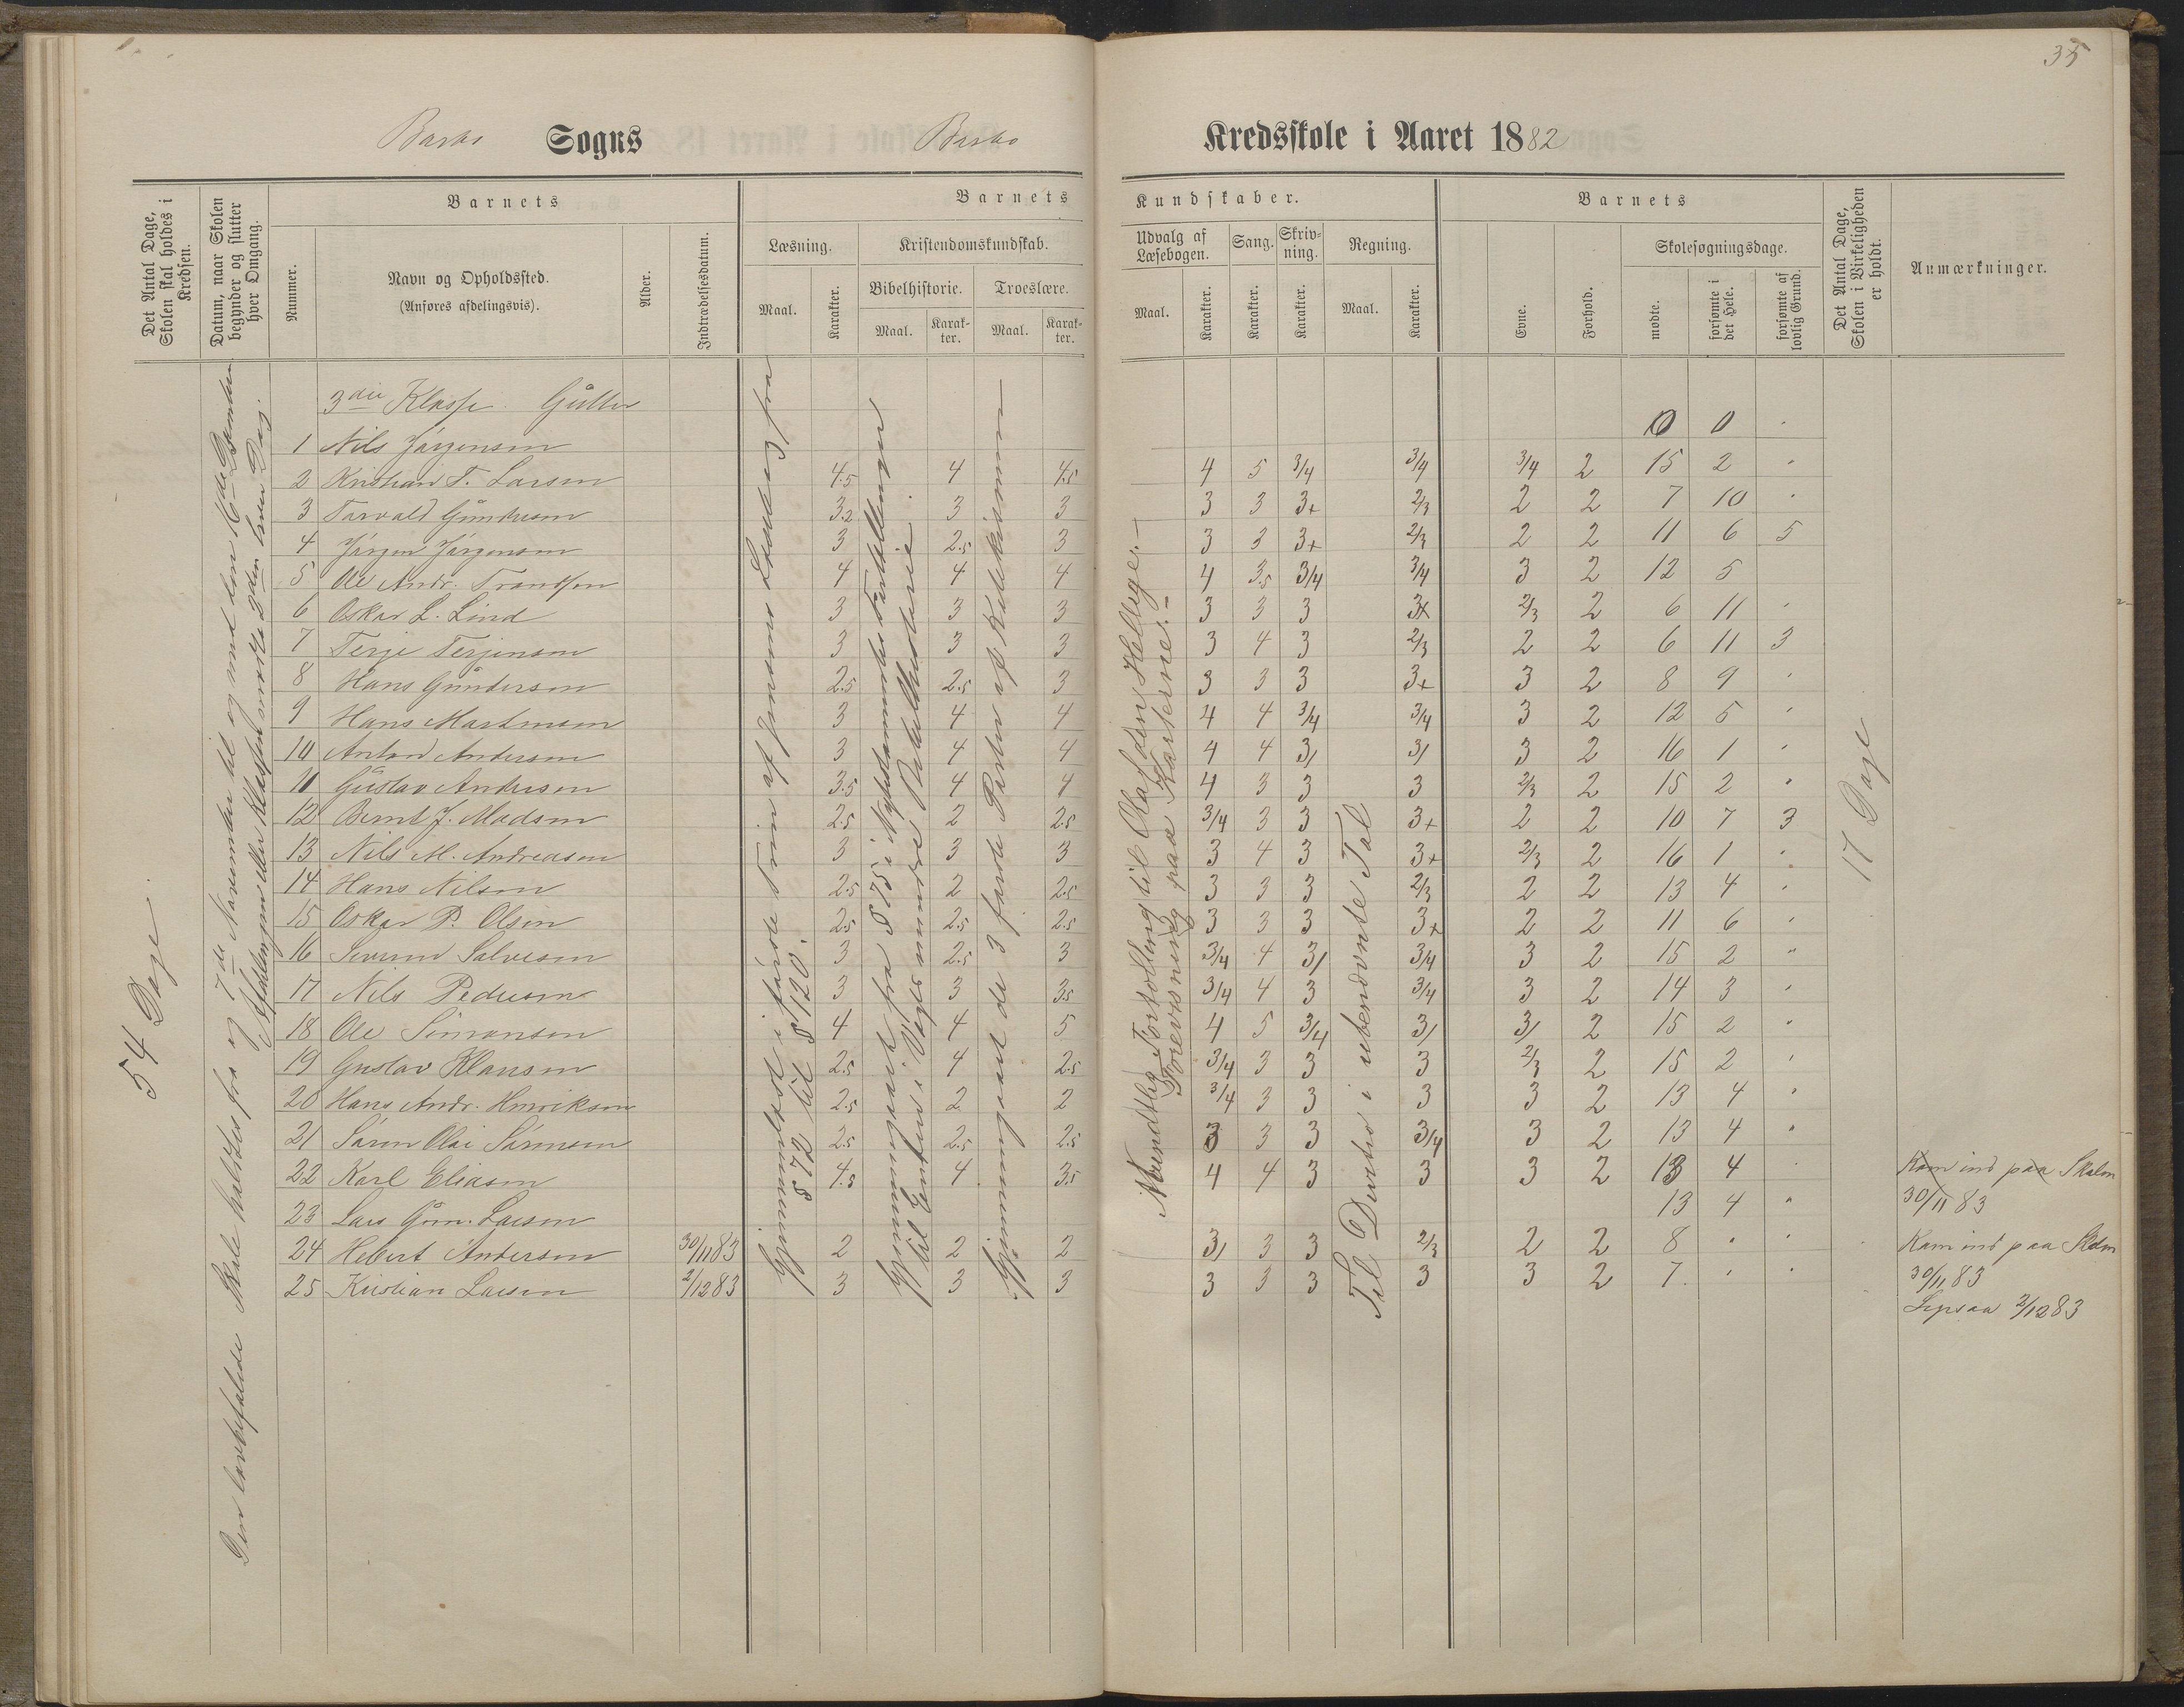 35
Barbo Sogns Barbo Kredsskole i Aaret 1882
Det Antal Dage, Skolen skal holdes i Kredsen.
Datum, naar Skolen begynder og slutter hver Omgang.
Barnets
Nummer.
Navn og Opholdssted.
(Anføres afdelingsvis).
Alder.
Indtrædelsesdatum.
Barnets Kundskaber.
Læsning.
Maal.
Karakter.
Kristendomskundskab.
Bibelhistorie.
Maal.
Karakter.
Troeslære.
Maal.
Karakter.
Udvalg af Læsebogen.
Maal.
Karakter.
Sang.
Karakter.
Skrivning.
Karakter.
Regning.
Maal.
Karakter.
Barnets
Evne.
Forhold.
Skolesøgningsdage.
mødte.
forsømte i det Hele.
forsømte af lovlig Grund.
Det Antal Dage, Skolen i Virkeligheden er holdt.
Anmærkninger.
54 Dage.
Den lovbefalede Skole holdtes fra og 7de November til og med den
Afdelingen eller Klassen mødte 2den hver Dag.
3die Klasse. Gutter
Gjennemlæst i første Trin af Jensens Læsebog fra
§ 72 til § 120.
Gjennemgaaet fra § 75 i Nytestamentes Fortællinger
til Enden i Vogts mindre Bibelhistorie.
Gjennemgaaet de 3 første Parter af Katekismen
Mundtlig Fortælling til Olaf den Hellige.
Forevisning paa Karterne.
Til Division i ubenævnte Tal
17 Dage
1 Nils Jörgensen 0 0 "
2 Kristian T. Larsen 4.5 4 4.5 4 5 3/4 3/4 3/4 2 15 2 "
3 Tarvald Gundersen 3.2 3 3 3 3 3+ 2/3 2 2 7 10 "
4 Jörgen Jörgensen 3 2.5 3 3 3 3+ 2/3 2 2 11 6 5
5 Ole Andr. Trondsen 4 4 4 4 3.5 3/4 3/4 3 2 12 5
6 Oskar L. Lind 3 3 3 3 3 3 3+ 2/3 2 6 11 "
7 Terje Terjensen 3 3 3 3 4 3 2/3 2 2 6 11 3
8 Hans Gundersen 2.5 2.5 3 3 3 3 3+ 3 2 8 9 "
9 Hans Martinsen 3 4 4 4 4 3/4 3/4 3 2 12 5 "
10 Anton Andersen 3 4 4 4 4 3/ 3/ 3 2 16 1 "
11 Gustav Andersen 3.5 4 4 4 3 3 3 2/3 2 15 2 "
12 Bernt J. Madsen 2.5 2 2.5 3/4 3 3 3+ 2 2 10 7 3
13 Nils M. Andreasen 3 3 3 3 4 3 3+ 2/3 2 16 1 "
14 Hans Nilsen 2.5 2 2.5 3 3 3 2/3 2 2 13 4 "
15 Oskar P. Olsen 2.5 2.5 2.5 3 3 3 3+ 2 2 11 6 "
16 Severin Salvesen 3 2.5 3 3/4 4 3/ 3/4 3 2 15 2 "
17 Nils Pedersen 3 3 3.5 3/4 4 3 3/4 3 2 14 3 "
18 Ole Simonsen 4 4 5 4 5 3/4 3/ 3/ 2 15 2 "
19 Gustav Klausen 2.5 4 2.5 3/4 3 3 3 2/3 2 15 2 "
20 Hans Andr. Henriksen 2.5 2 2 3/4 3 3 3 3 2 13 4 "
21 Sören Olai Sörensen 2.5 2.5 2.5 3 3 3 3/4 3 2 13 4 "
22 Karl Eliasen 4.5 4 3.5 4 4 3 3 3 2 13 4 " Kom ind paa Skolen
23 Lars Gun. Larsen 13 4 " 30/11 83
24 Hebert Andersen 30/11 83 2 2 2 3/ 3 3 2/3 2 2 8 " " Kom ind paa Skolen
25 Kristian Larsen 2/12 83 3 3 3 3 3 3 3 3 2 7 " " 30/11 83
2/12 83